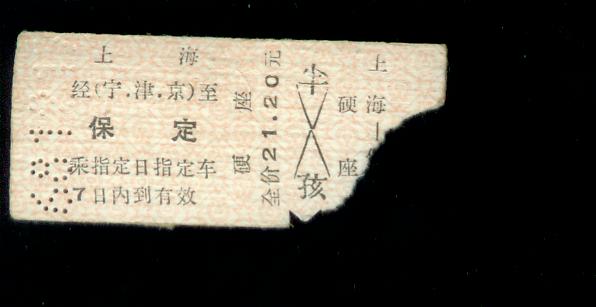 上 海
经(宁.津.京)至
保 定
乘指定日指定车
7日内到有效
硬 座
全价21.20元
孩
硬 座
上 海